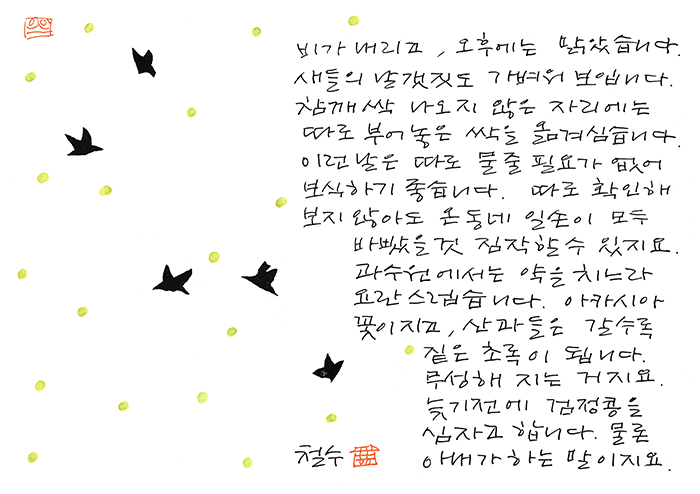 비가 내리고, 오후에는 맑았습니다.
새들의 날갯짓도 가벼워 보입니다.
참깨 싹 나오지 않은 자리에는
따로 부어놓은 싹을 옮겨심습니다.
이런날은 따로 물줄 필요가 없어
보식하기 좋습니다. 따로 확인해
보지 않아도 온동네 일손이 모두
바빴을것 짐작할수 있지요.
과수원에서는 약을 치느라
요란스럽습니다. 아카시아
꽃이지고, 산과들은 갈수록
짙은 초록이 됩니다.
무성해 지는 거지요.
늦기전에 검정콩을
심자고 합니다. 물론
아내가 하는 말이지요.
철수